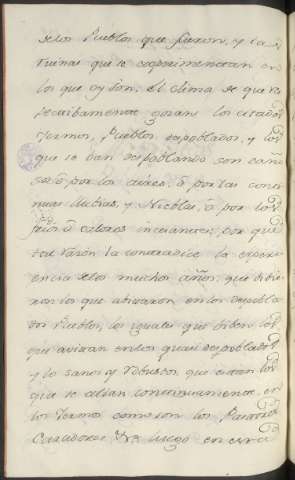 delos Pueblos que fueron, y las
ruinas que se experimentan en
los que oy son. El clima de que res
pectibamente gozan los citados
Yermos, Pueblos despoblados, y los
que se ban despoblando son cau
sa ô por los aires, ô por las conti
nuas lluvias, y Nieblas, ô por los
frios, ô calores
esta razon la contradice la experi
encia delos muchos años, que bibie
ron los que abitaron en los despobla
dos Pueblos, los iguales que biben los
que avitan en los quasi despoblados
y lo sanos y robustos que estan los
que se allan continuamente en
los Yermos como son los Pastores
Cazadores &ra luego en esta